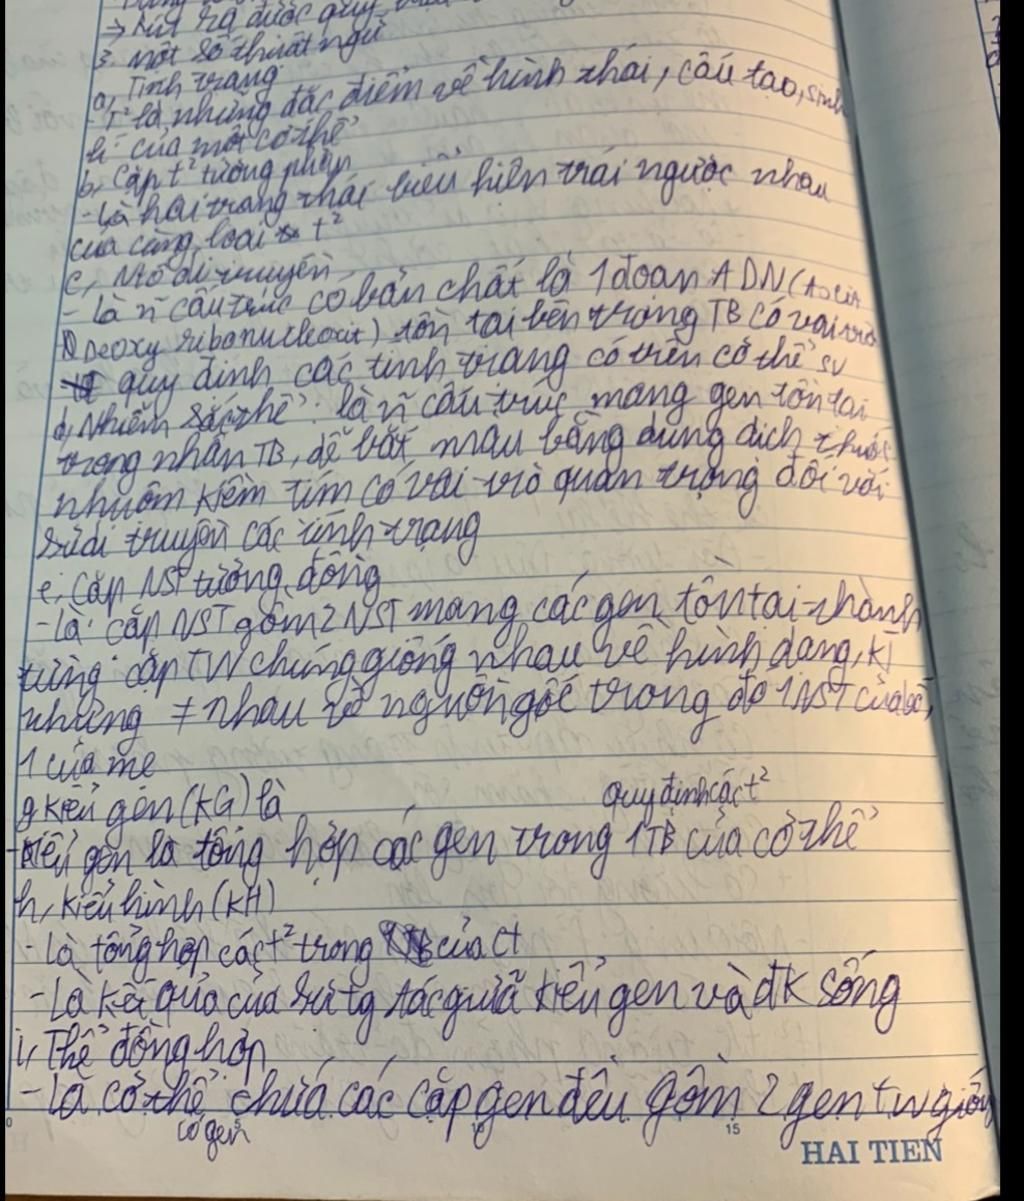 ⇒ Rút ra được quy
3. một số thuật ngữ
a, Tính trạng
- T² là những đặc điểm về hình thái, cấu tạo, sinh
lí của một cơ thể
b, Cặp t² tương phản
- Là hai trạng thái biểu hiện trái ngược nhau
của cùng loại t²
c, Ntố di truyền
- Là n~ cấu trúc có bản chất là 1 đoạn ADN (Axit
Deoxy ribonucleoxit) tồn tại bên trong TB có vai trò
quy định các tính trạng có trên cơ thể SV
d, Nhiễm sắc thể: là n~ cấu trúc mang gen tồn tại
trong nhân TB, dễ bắt màu bằng dung dịch thuốc
nhuộm kiềm tím có vai trò quan trọng đối với
sự di truyền các tính trạng
e, Cặp NST tương đồng
- Là cặp NST gồm 2 NST mang các gen tồn tại thành
từng cặp TW chúng giống nhau về hình dạng, kT
nhưng ≠ nhau về nguồn gốc trong đó 1 NST của bố,
1 của mẹ
g kiểu gen (KG) là
quy định các t²
- Kiểu gen là tổng hợp các gen trong 1 TB của cơ thể
h, Kiểu hình (KH)
- Là tổng hợp các t² trong của ct
- Là kết quả của sự tg tác giữa kiểu gen và đk sống
i, Thể đồng hợp
- Là cơ thể chứa các cặp gen đều gồm 2 gen tw giống
có gen
0 5 10 15
HAI TIEN